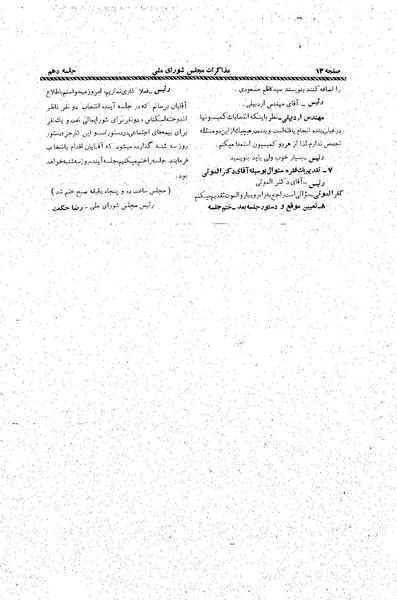 صفحه ۱۴
مذاکرات مجلس شورای ملی
جلسه دهم
را اضافه کنند بنویسند سیدکاظم مسعودی.
رئیس ـ آقای مهندس اردبیلی.
مهندس اردبیلی ـ نظر باینکه انتخابات کمیسیونها
در غیاب بنده انجام یافته است و بنده در هیچیک از این دو مسئله
تخصص ندارم لذا از هر دو کمیسیون استعفا میکنم.
رئیس ـ بسیار خوب ولی باید بنویسید
۷ ـ تقدیم یک فقره سئوال بوسیله آقای دکتر الموتی
رئیس ـ آقای دکتر الموتی
دکتر الموتی ـ سؤالی است راجع به راه رودبار و الموت تقدیم میکنم
۸ ـ تعیین موقع و دستور جلسه بعد ـ ختم جلسه
رئیس ـ فعلا کاری نداریم، امروز میخواستم باطلاع
آقایان برسانم که در جلسه آینده انتخاب دو نفر ناظر
اندوخته اسکناس، دو نفر برای شورایعالی نفت و یک نفر
برای بیمه‌های اجتماعی در دستور است و این تا روز سه‌شنبه
روز سه شنبه گذارده میشود که آقایان اقدام بانتخاب
فرمایند. جلسه را ختم میکنیم جلسه آینده روز سه شنبه خواهد
بود.
(مجلس ساعت ده و پنجاه دقیقه صبح ختم شد)
رئیس مجلس شورای ملی ـ رضا حکمت